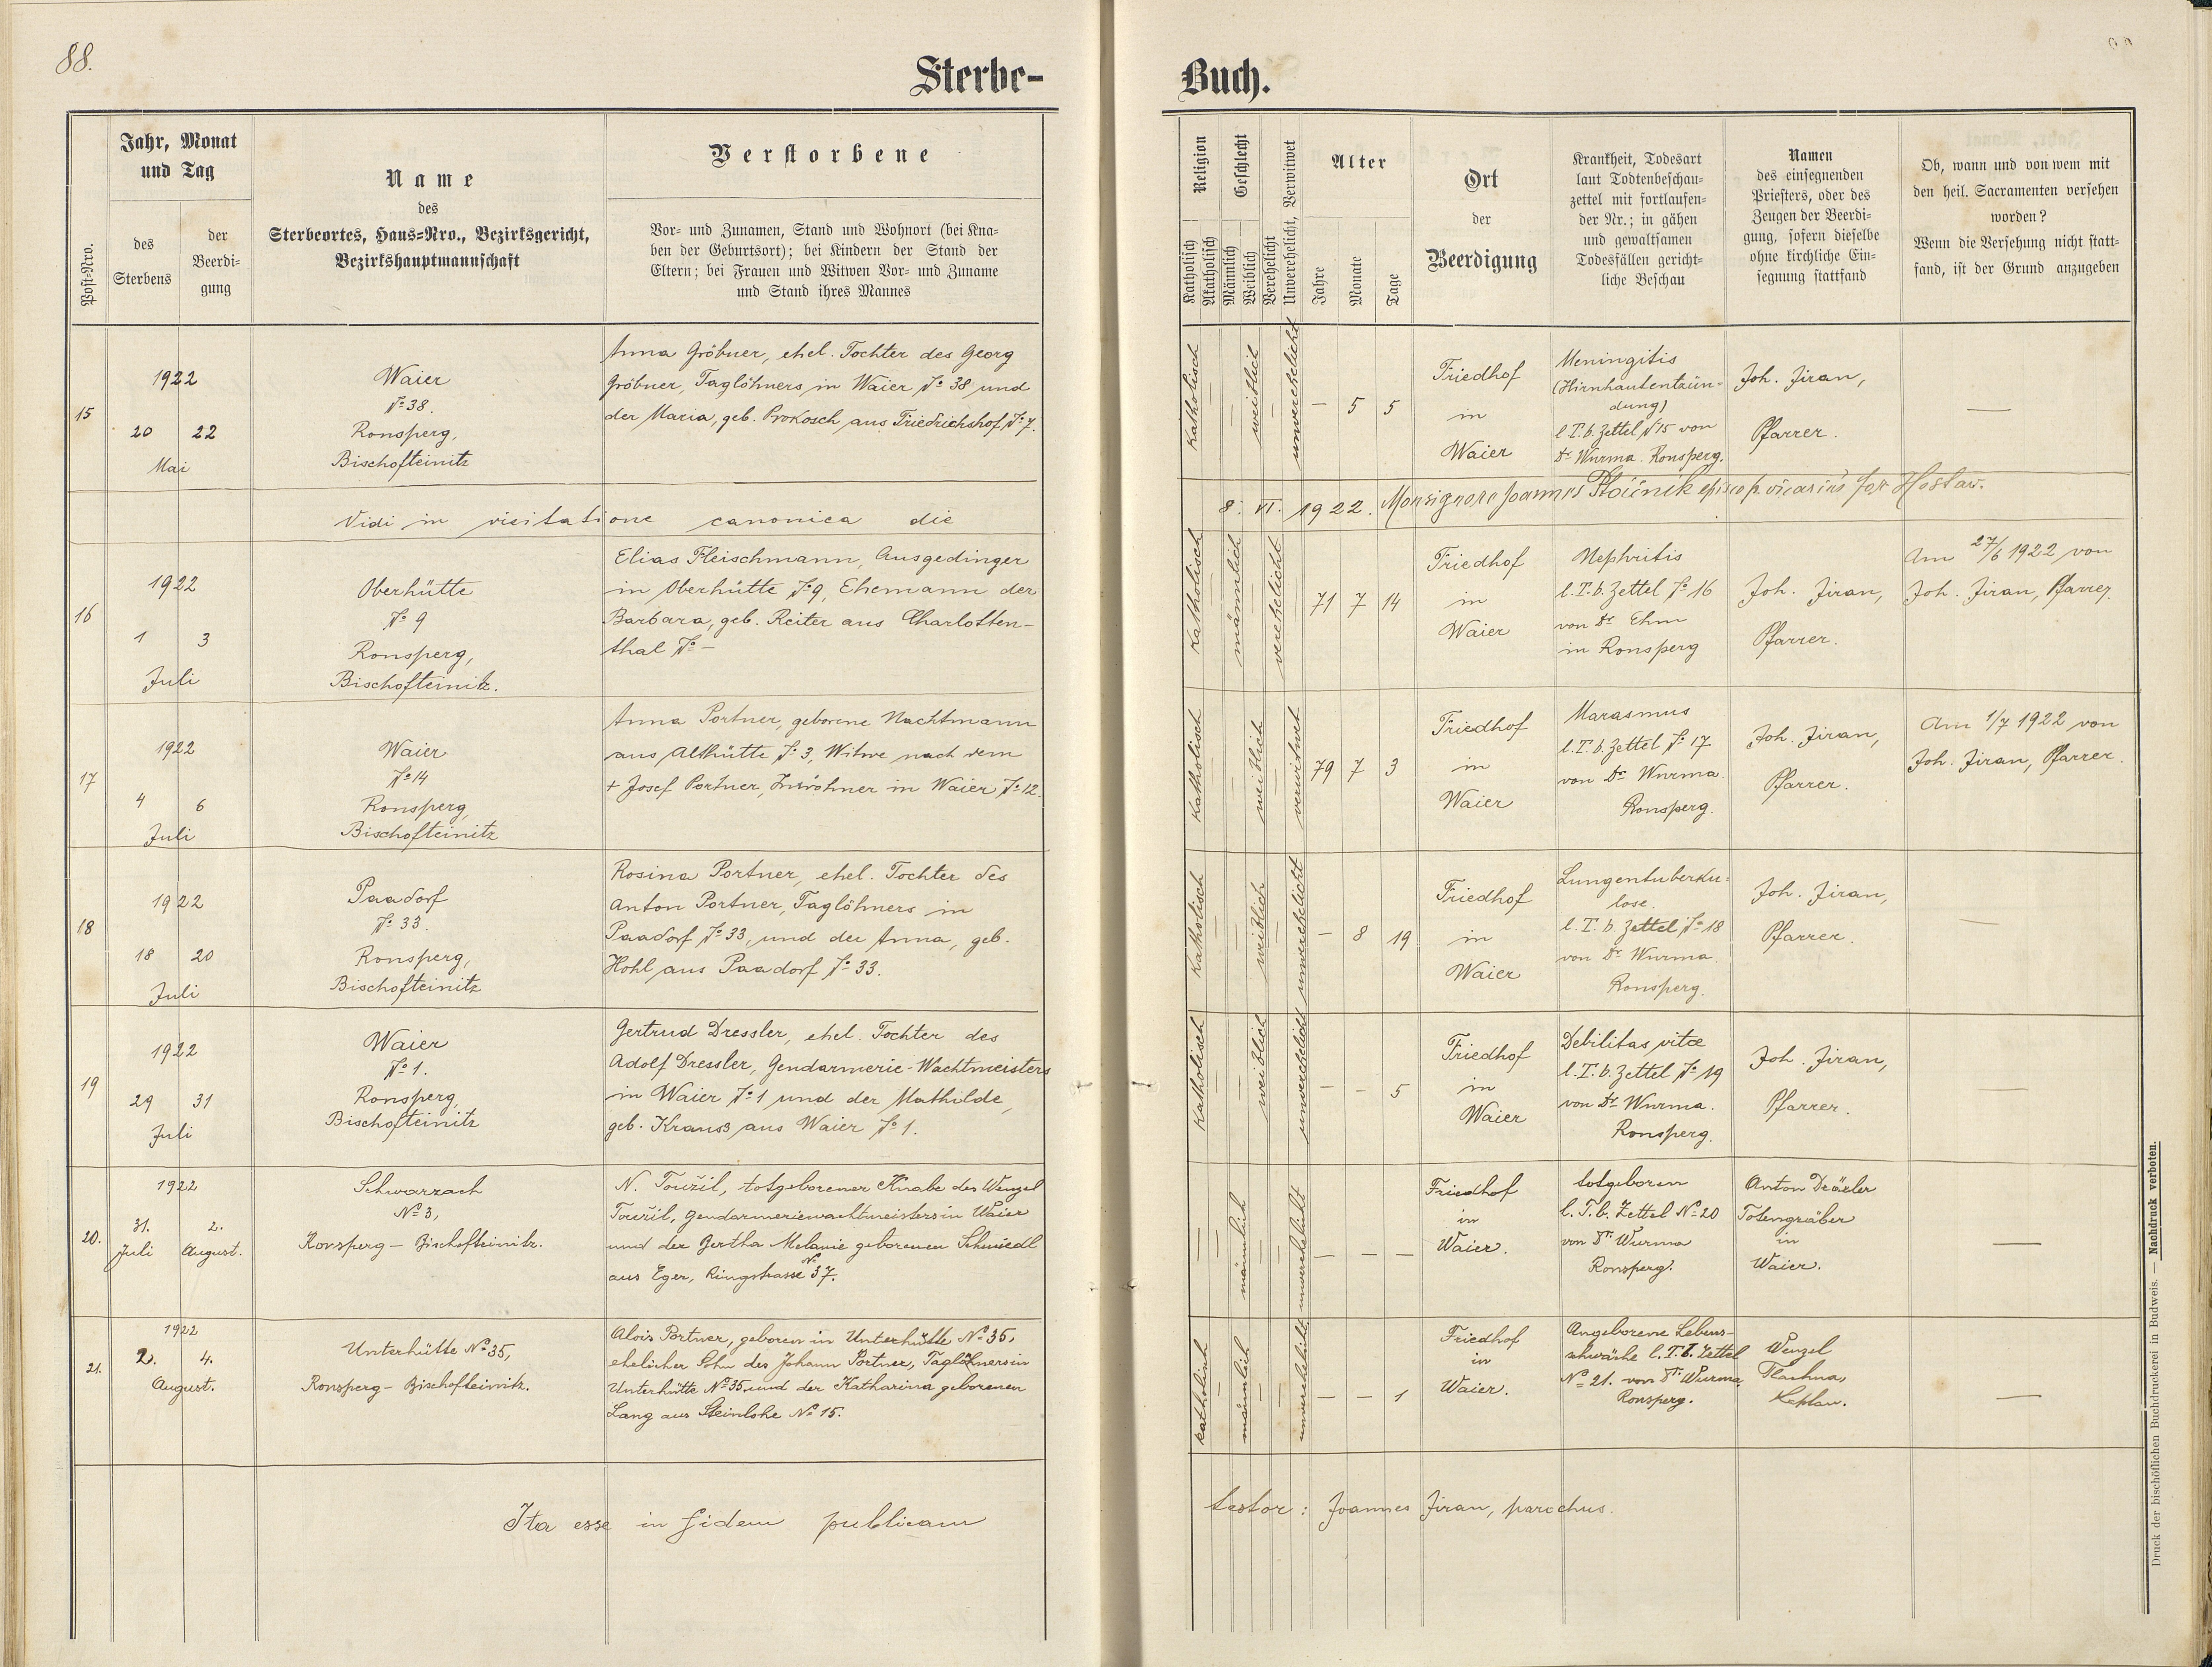 88.
Sterbe-
Buch.
Post-Nro.
Jahr, Monat
und Tag
des
Sterbens
der
Beerdi-
gung
Name
des
Sterbeortes, Haus-Nro., Bezirksgericht,
Bezirkshauptmannschaft
Verstorbene
Vor- und Zunamen, Stand und Wohnort (bei Kna-
ben der Geburtsort); bei Kindern der Stand der
Eltern; bei Frauen und Witwen Vor- und Zuname
und Stand ihres Mannes
Religion
Katholisch
Akatholisch
Geschlecht
Männlich
Weiblich
Verehelicht
Unverehelicht, Verwitwet
Alter
Jahre
Monate
Tage
Ort
der
Beerdigung
Krankheit, Todesart
laut Todtenbeschau-
zettel mit fortlaufen-
der Nr.; in gähen
und gewaltsamen
Todesfällen gericht-
liche Beschau
Namen
des einsegnenden
Priesters, oder des
Zeugen der Beerdi-
gung, sofern dieselbe
ohne kirchliche Ein-
segnung stattfand
Ob, wann und von wem mit
den heil. Sacramenten versehen
worden?
Wenn die Versehung nicht statt-
fand, ist der Grund anzugeben
15
1922
20 22
Mai
Waier
№ 38.
Ronsperg,
Bischofteinitz
Anna Gröbner, ehel. Tochter des Georg
Gröbner, Taglöhners in Waier № 38 und
der Maria, geb. Prokosch aus Friedrichshof № 7.
Katholisch
—
—
weiblich
—
unverehelicht
— 5 5
Friedhof
in
Waier
Meningitis
(Hirnhautentzün-
dung)
l. T. b. Zettel № 15 von
Dr Wurma. Ronsperg.
Joh. Jiran,
Pfarrer.
—
Vidi in visitatione canonica die
8. VI. 1922. Monsignore Joannes Ptáčník episcop. vicarius for Hostau.
16
1922
1 3
Juli
Oberhütte
№ 9
Ronsperg,
Bischofteinitz.
Elias Fleischmann, Ausgedinger
in Oberhütte № 9, Ehemann der
Barbara, geb. Reiter aus Charlotten-
thal № —
Katholisch
—
männlich
—
verehelicht
—
71 7 14
Friedhof
in
Waier
Nephritis
l. T. b. Zettel № 16
von Dr Ehm
in Ronsperg
Joh. Jiran,
Pfarrer.
Am 27/6 1922 von
Joh. Jiran, Pfarrer.
17
1922
4 6
Juli
Waier
№ 14
Ronsperg,
Bischofteinitz
Anna Portner, geborene Nachtmann
aus Althütte № 3, Witwe nach dem
+ Josef Portner, Inwohner in Waier № 12.
Katholisch
—
—
weiblich
—
verwitwet
79 7 3
Friedhof
in
Waier
Marasmus
l. T. b. Zettel № 17
von Dr Wurma
Ronsperg.
Joh. Jiran,
Pfarrer.
Am 1/7 1922 von
Joh. Jiran, Pfarrer.
18
1922
18 20
Juli
Paadorf
№ 33.
Ronsperg,
Bischofteinitz
Rosina Portner, ehel. Tochter des
Anton Portner, Taglöhners in
Paadorf № 33, und der Anna, geb.
Hohl aus Paadorf № 33.
Katholisch
—
—
weiblich
—
unverehelicht
— 8 19
Friedhof
in
Waier
Lungentuberku-
lose.
l. T. b. Zettel № 18
von Dr Wurma.
Ronsperg.
Joh. Jiran,
Pfarrer.
—
19
1922
29 31
Juli
Waier
№ 1.
Ronsperg,
Bischofteinitz
Gertrud Dressler, ehel. Tochter des
Adolf Dressler, Gendarmerie-Wachtmeisters
in Waier № 1 und der Mathilde,
geb. Krauss aus Waier № 1.
Katholisch
—
—
weiblich
—
unverehelicht
— — 5
Friedhof
in
Waier
Debilitas vitæ
l. T. b. Zettel № 19
von Dr Wurma.
Ronsperg.
Joh. Jiran,
Pfarrer.
—
20.
1922
31. 2.
Juli August.
Schwarzach
№ 3,
Ronsperg — Bischofteinitz.
N. Toužil, totgeborener Knabe des Wenzel
Toužil, Gendarmeriewachtmeisters in Waier
und der Bertha Melanie geborenen Schmiedl
aus Eger, Ringstrasse № 37.
—
—
männlich
—
—
unverehelicht
— — —
Friedhof
in
Waier.
totgeboren
l. T. b. Zettel № 20
von Dr. Wurma
Ronsperg.
Anton Dräxler
Totengräber
in
Waier.
—
21.
1922
2. 4.
August.
Unterhütte № 35,
Ronsperg — Bischofteinitz.
Alois Portner, geboren in Unterhütte № 35,
ehelicher Sohn des Johann Portner, Taglöhners in
Unterhütte № 35, und der Katharina geborenen
Lang aus Steinlohe № 15.
katholisch
—
männlich
—
—
unverehelicht
— — 1
Friedhof
in
Waier.
Angeborene Lebens-
schwäche l. T. b. Zettel
№ 21. von Dr. Wurma,
Ronsperg.
Wenzel
Kaplan.
—
Ita esse in fidem publicam
testor: Joannes Jiran, parochus.
Druck der bischöflichen Buchdruckerei in Budweis. — Nachdruck verboten.